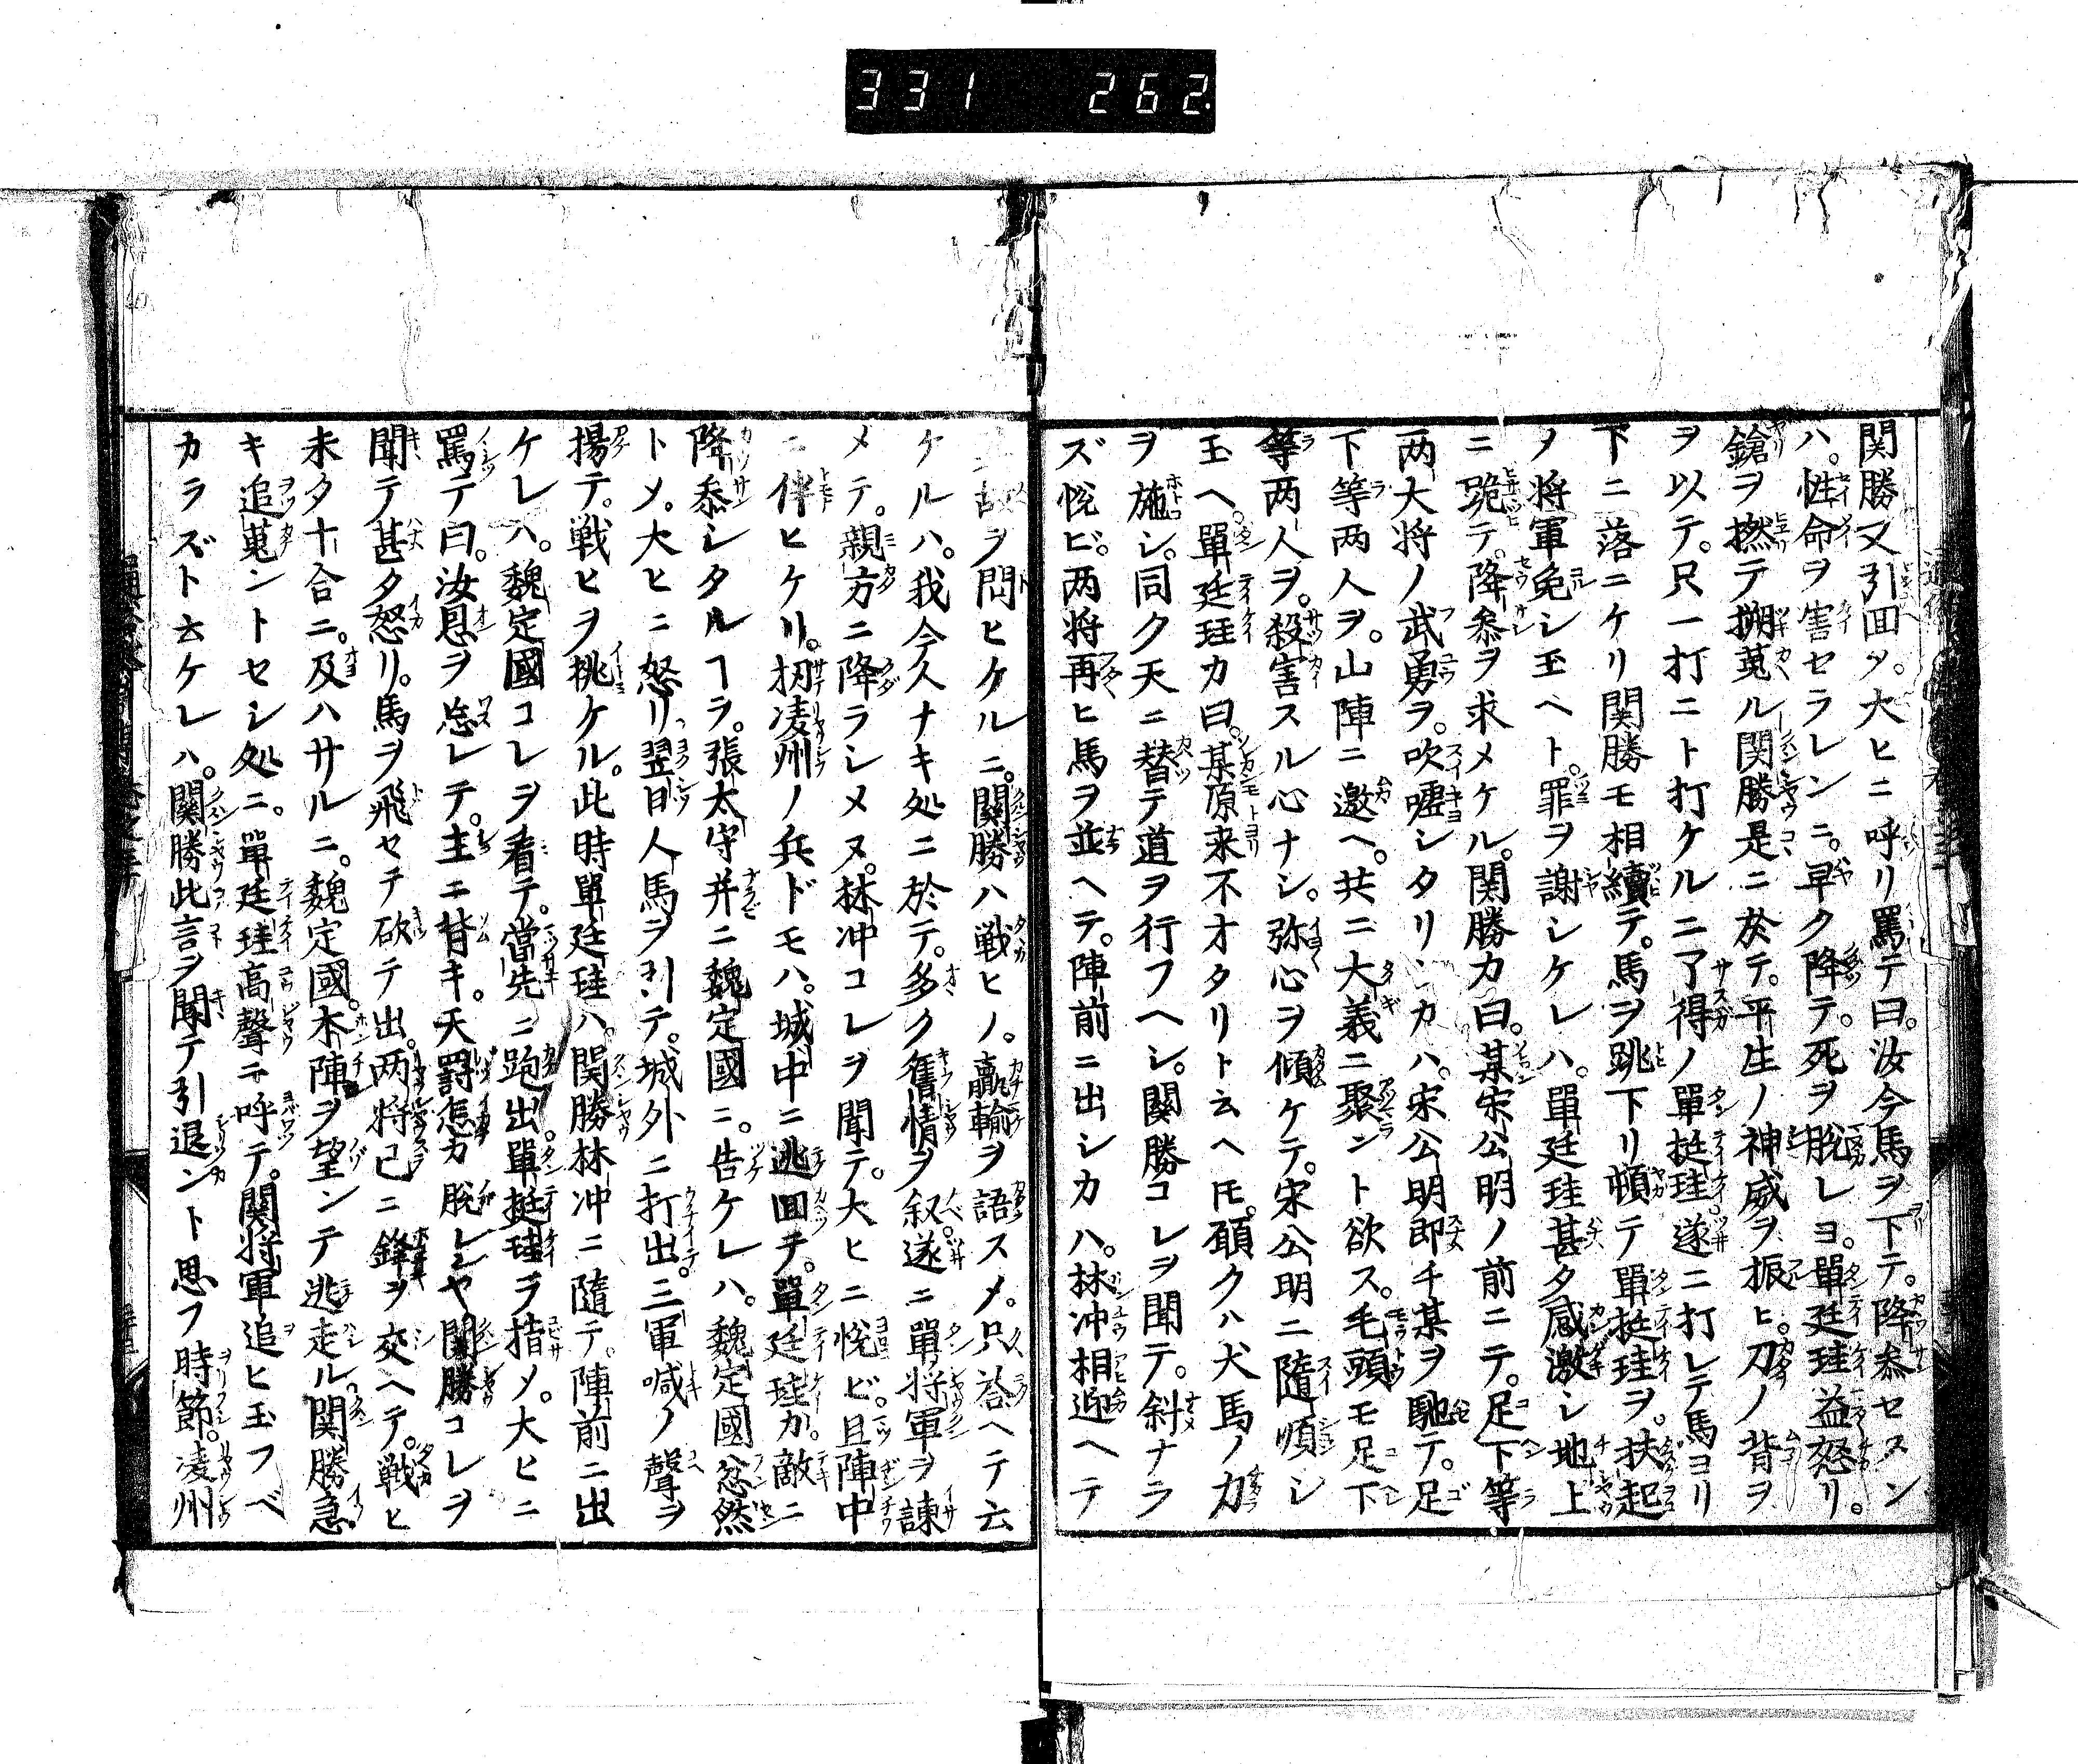 331 262.
関勝又引囬ツ。大ヒニ呼リ罵テ曰。汝今馬ヲ下テ。降叅セスン
ハ。性命ヲ害セラレンニ。早ク降テ。死ヲ脱レヨ。單廷珪益怒リ。
鎗ヲ撚テ搠蒐ル関勝是ニ於テ。平生ノ神威ヲ振ヒ。刀ノ背ヲ
ヲ以テ。只一打ニト打ケルニ了得ノ單挺珪遂ニ打レテ馬ヨリ
下ニ落ニケリ関勝モ相續テ。馬ヲ跳下リ頓テ單挺珪ヲ。扶起
ノ将軍免シ玉ヘト。罪ヲ謝シケレハ。單廷珪甚タ感激シ地上
ニ跪テ。降叅ヲ求メケル。関勝カ曰。某宋公明ノ前ニテ。足下等
两大将ノ武勇ヲ。吹嘘シタリシカハ。宋公明即チ某ヲ馳テ。足
下等两人ヲ。山陣ニ邀ヘ。共ニ大義ニ聚ント欲ス。毛頭モ足下
等两人ヲ。殺害スル心ナシ。弥心ヲ傾ケテ。宋公明ニ隨順シ
玉ヘ。單廷珪カ曰。某原来不才タリト云ヘ𪜈。願クハ犬馬ノ力
ヲ施シ。同ク天ニ替テ道ヲ行フヘシ。関勝コレヲ聞テ。斜ナラ
ズ悦ビ。两将再ヒ馬ヲ並ヘテ。陣前ニ出シカハ。林冲相迎ヘテ
故ヲ問ヒケルニ。関勝ハ戦ヒノ。贏輸ヲ語スメ。只荅ヘテ云
ケルハ。我今人ナキ処ニ於テ。多ク舊情ヲ叙遂ニ單将軍ヲ諫
メテ。親方ニ降ラシメヌ。林冲コレヲ聞テ。大ヒニ悦ビ。且陣中
ニ伴ヒケリ。扨凌州ノ兵ドモハ。城中ニ逃囬テ。單廷珪カ。敵ニ
降叅シタルヿヲ。張太守并ニ魏定國ニ。告ケレハ。魏定國忿然
トメ。大ヒニ怒リ翌日人馬ヲ引テ。城外ニ打出。三軍喊ノ聲ヲ
揚テ。戦ヒヲ挑ケル。此時單廷珪ハ。関勝林冲ニ隨テ。陣前ニ出
ケレハ。魏定國コレヲ看テ。當先ニ跑出。單挺珪ヲ指メ。大ヒニ
罵テ曰。汝恩ヲ忘レテ。主ニ背キ。天罸怎カ脱レンヤ関勝コレヲ
聞テ甚タ怒リ。馬ヲ飛セテ砍テ出。两将已ニ鋒ヲ交ヘテ。戦ヒ
未タ十合ニ。及ハサルニ。魏定國。本陣ヲ望ンテ逃走ル。関勝急
キ追蒐ントセシ処ニ。單廷珪高聲ニ呼テ。関将軍追ヒ玉フベ
カラズト云ケレハ。関勝此言ヲ聞テ引退ント思フ時節。凌州